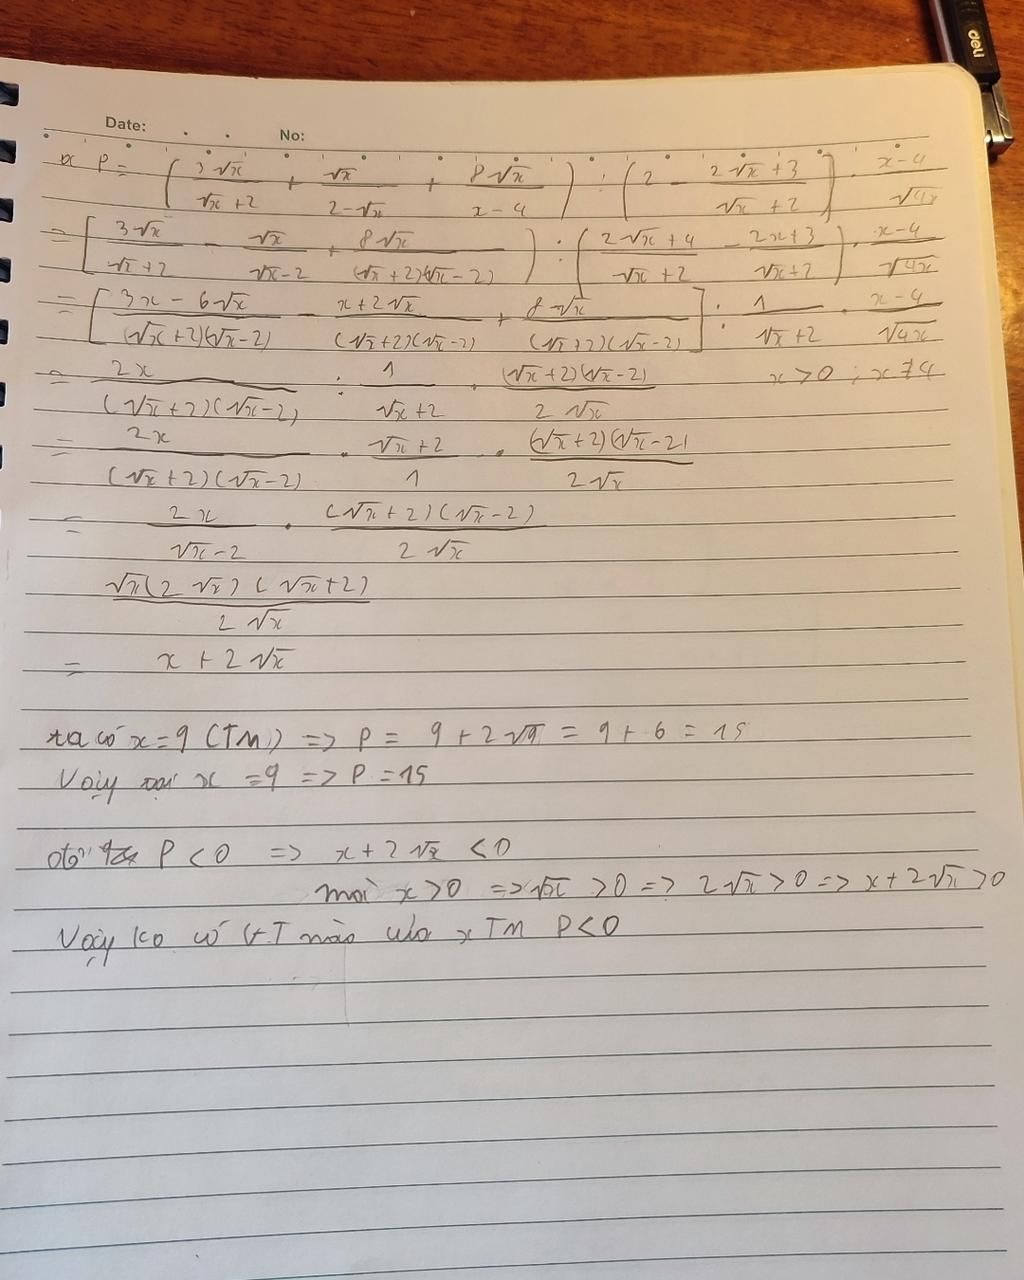 deli
Date: No:
P = ( 3√x / √x + 2 + √x / 2 - √x + 8√x / x - 4 ) : ( 2 - 2√x + 3 / √x + 2 ) . x - 4 / √4x
= [ 3√x / √x + 2 - √x / √x - 2 + 8√x / (√x + 2)(√x - 2) ) : ( 2√x + 4 / √x + 2 - 2x + 3 / √x + 2 ) . x - 4 / √4x
= [ 3x - 6√x / (√x + 2)(√x - 2) - x + 2√x / (√x + 2)(√x - 2) + 8√x / (√x + 2)(√x - 2) ] : 1 / √x + 2 . x - 4 / √4x
= 2x / (√x + 2)(√x - 2) : 1 / √x + 2 . (√x + 2)(√x - 2) / 2√x x > 0 ; x ≠ 4
= 2x / (√x + 2)(√x - 2) . √x + 2 / 1 . (√x + 2)(√x - 2) / 2√x
= 2x / √x - 2 . (√x + 2)(√x - 2) / 2√x
√x(2√x)(√x + 2) / 2√x
= x + 2√x
ta có x = 9 (TM) => P = 9 + 2√9 = 9 + 6 = 15
Vậy x = 9 => P = 15
để P < 0 => x + 2√x < 0
mà x > 0 => √x > 0 => 2√x > 0 => x + 2√x > 0
Vậy ko có nào của x TM P < 0